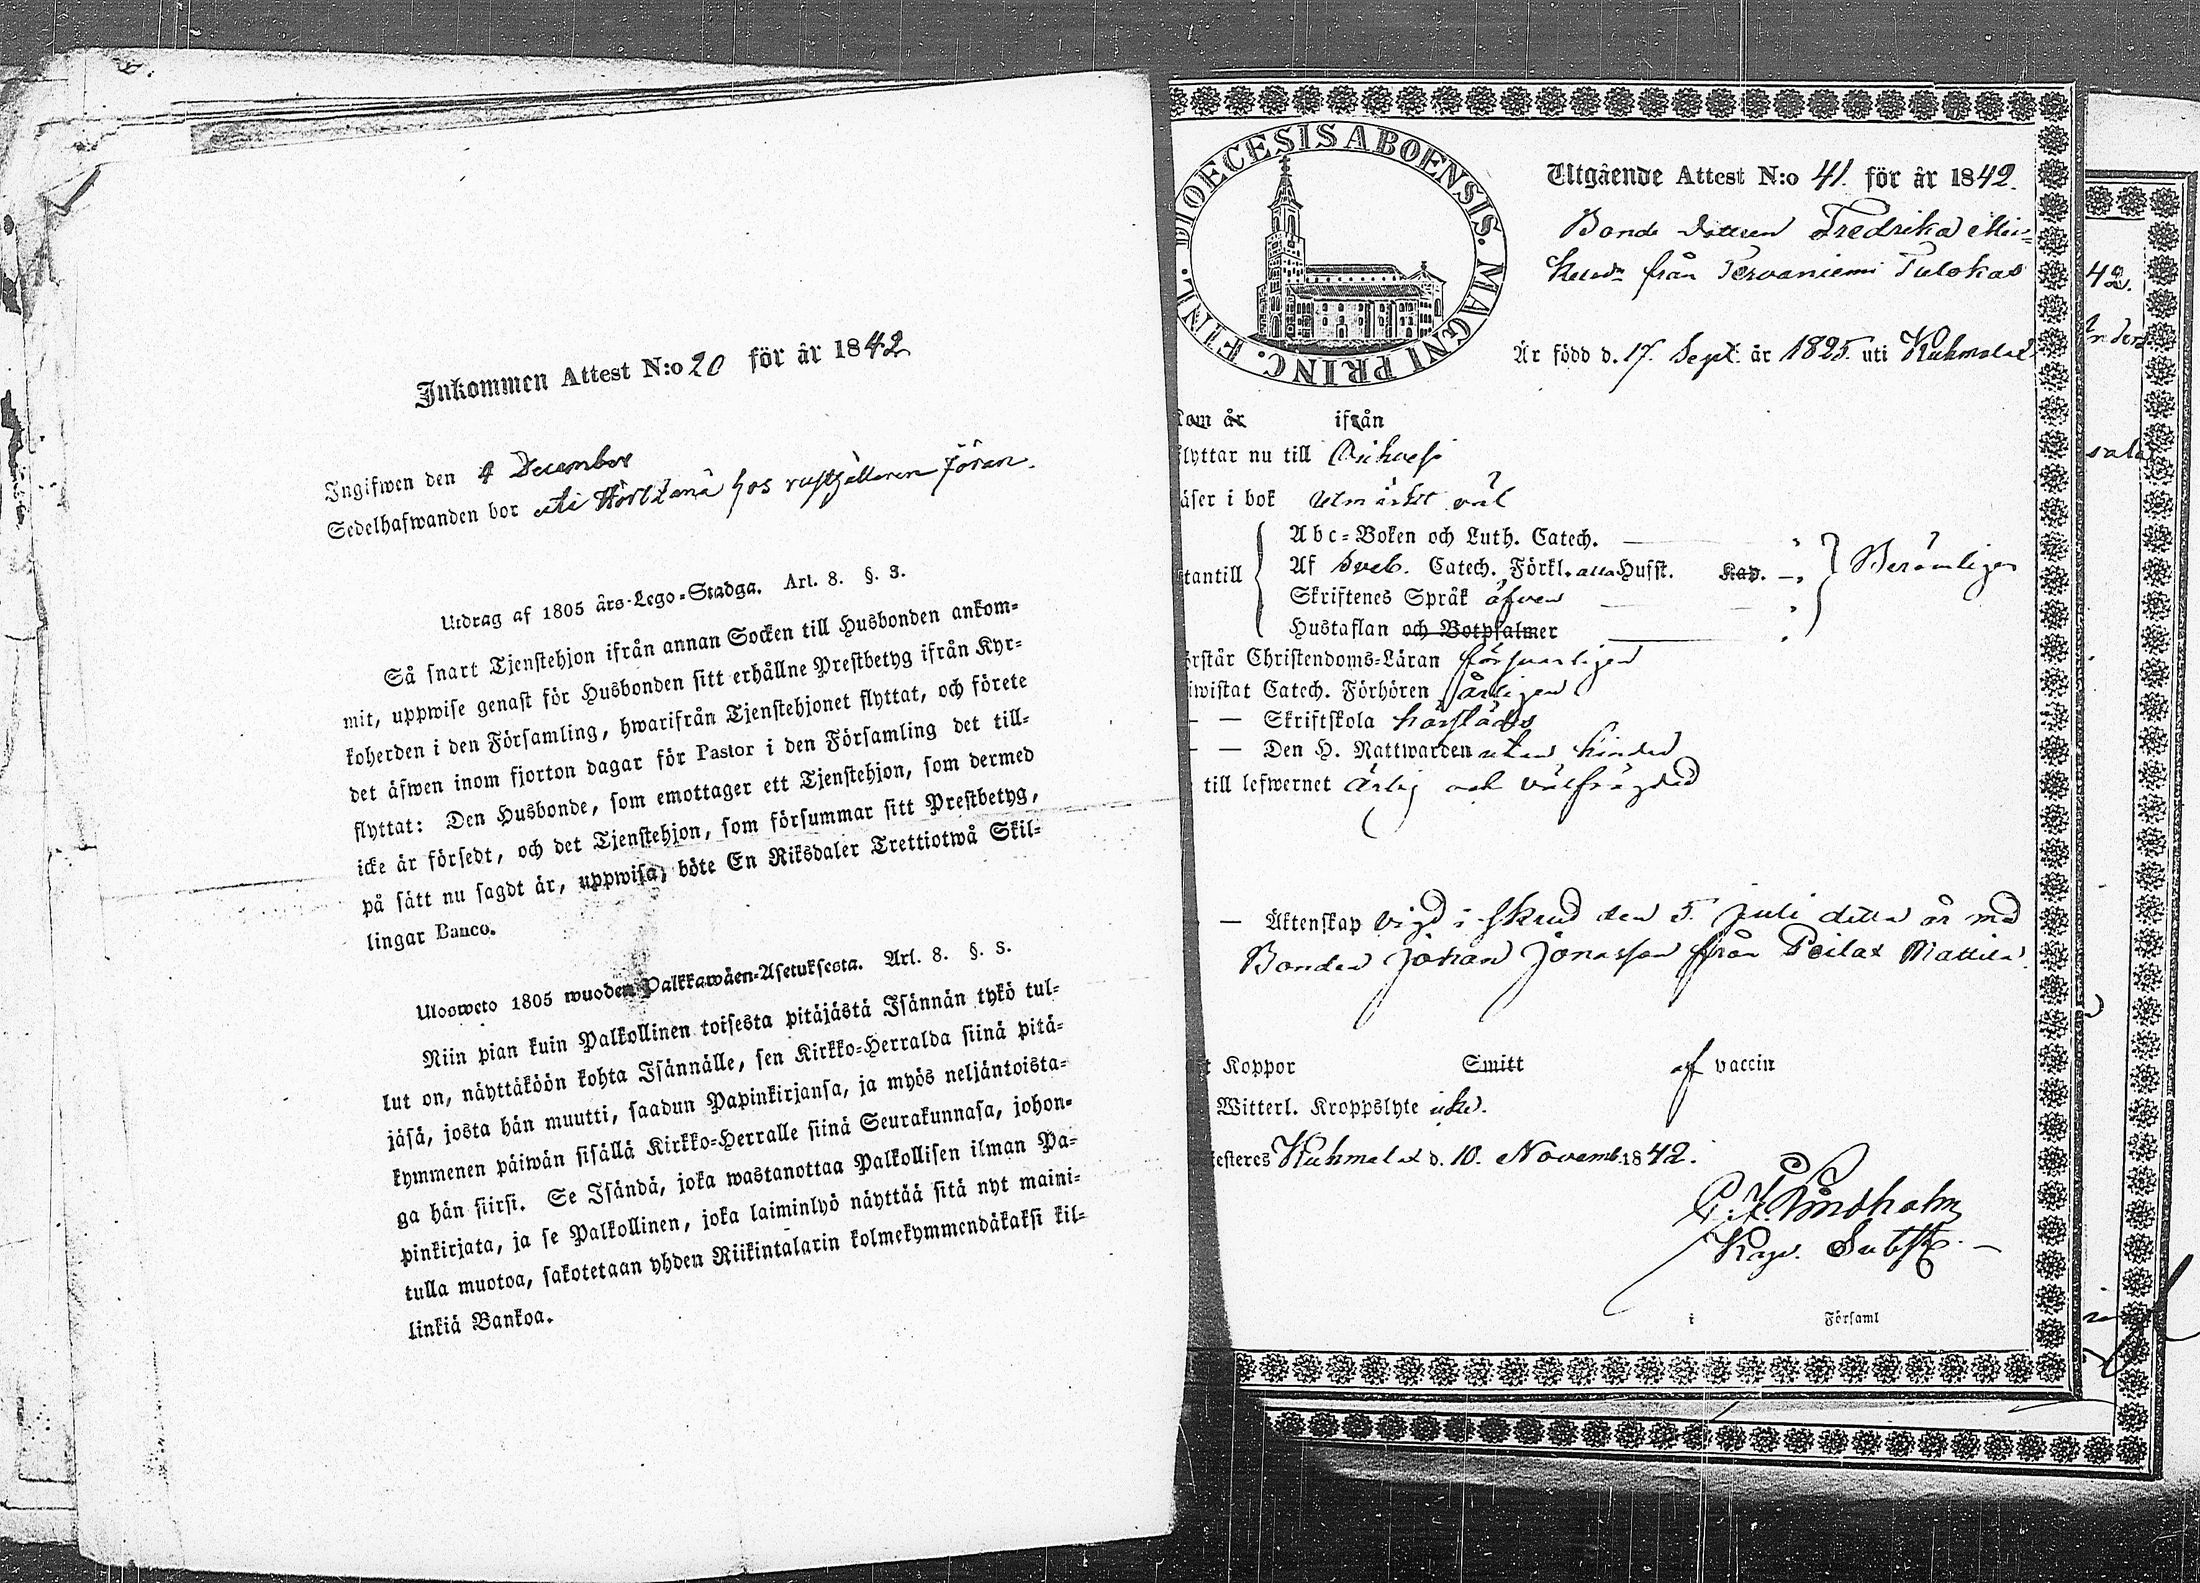 Inkommen Attest N:o 20 för år 1842
Ingifwen den 4 December
Sedelhafwanden bor uti hos rusthållaren Jöran.
Utdrag af 1805 års Lego-Stadga. Art. 8. §. 3.
Så snart Tjenstehjon ifrån annan Socken till Husbonden ankom-
mit, uppwise genast för Husbonden sitt erhållne Prestbetyg ifrån Kyr-
koherden i den Församling, hwarifrån Tjenstehjonet flyttat, och förete
det äfwen inom fjorton dagar för Pastor i den Församling det till-
flyttat: Den Husbonde, som emottager ett Tjenstehjon, som dermed
icke är försedt, och det Tjenstehjon, som försummar sitt Prestbetyg,
på sätt nu sagdt är, uppwisa, böte En Riksdaler Trettiotwå Skil-
lingar Banco.
Ulosweto 1805 wuoden Palkkawäen-Asetuksesta. Art. 8. §. 3.
Niin pian kuin Palkollinen toisesta pitäjästä Isännän tykö tul-
lut on, näyttäköön kohta Isännälle, sen Kirkko-Herralda siinä pitä-
jäsä, josta hän muutti, saadun Papinkirjansa, ja myös neljäntoista-
kymmenen päiwän sisällä Kirkko-Herralle siinä Seurakunnasa, johon-
ga hän siirsi. Se Isändä, joka wastanottaa Palkollisen ilman Pa-
pinkirjata, ja se Palkollinen, joka laiminlyö näyttää sitä nyt maini-
tulla muotoa, sakotetaan yhden Riikintalarin kolmekymmendäkaksi kil-
linkiä Bankoa.
DIOECESIS ABOENSIS. MAGNI PRINC. FINL.
Utgående Attest N:o 41. för år 1842.
Bonde dottren Fredrika
från Pulckas
42.
Är född d. 17. Sept. år 1825. uti Kuhmalax
Kom år ifrån
flyttar nu till
läser i bok Utmärkt väl
Abc-Boken och Luth. Catech.
utantill Af Sveb. Catech. Förkl. alla Husst. Kap. Berömligen
Skriftenes Språk äfven
Hustaflan och Botpsalmer
örstår Christendoms-Läran försvarligen
iwistat Catech. Förhören årligen
- - Skriftskola härstädes
- - Den H. Nattwarden utan hinder
till lefwernet ärlig och välfrägdad
- Äktenskap vigd i Skrud den 5. Juli detta år med
Bonden Johan Jonasson från Mattila
t Koppor Smitt af vaccin
Witterl. Kroppslyte icke.
testeres Kuhmalax d. 10. Novemb. 1842.
Lindholm
Kapl. Subst.
i Församl